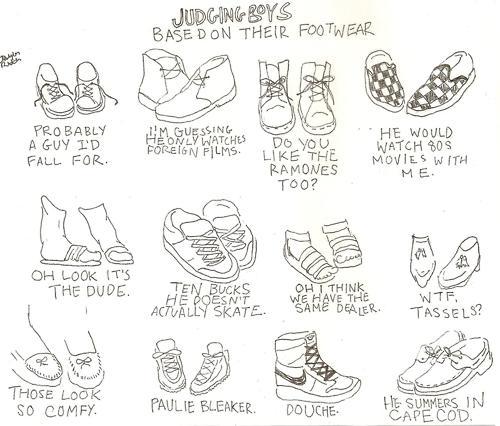 JUDGING BOYS
BASED ON THEIR FOOTWEAR
PROBABLY
A GUY I'D
FALL FOR.
I'M GUESSING
HE ONLY WATCHES
FOREIGN FILMS.
DO YOU
LIKE THE
RAMONES
TOO?
HE WOULD
WATCH 80S
MOVIES WITH
ME.
OH LOOK IT'S
THE DUDE.
TEN BUCKS
HE DOESN'T
ACTUALLY SKATE.
OH I THINK
WE HAVE THE
SAME DEALER.
WTF,
TASSELS?
THOSE LOOK
SO COMFY.
PAULIE BLEAKER.
DOUCHE.
HE SUMMERS IN
CAPE COD.